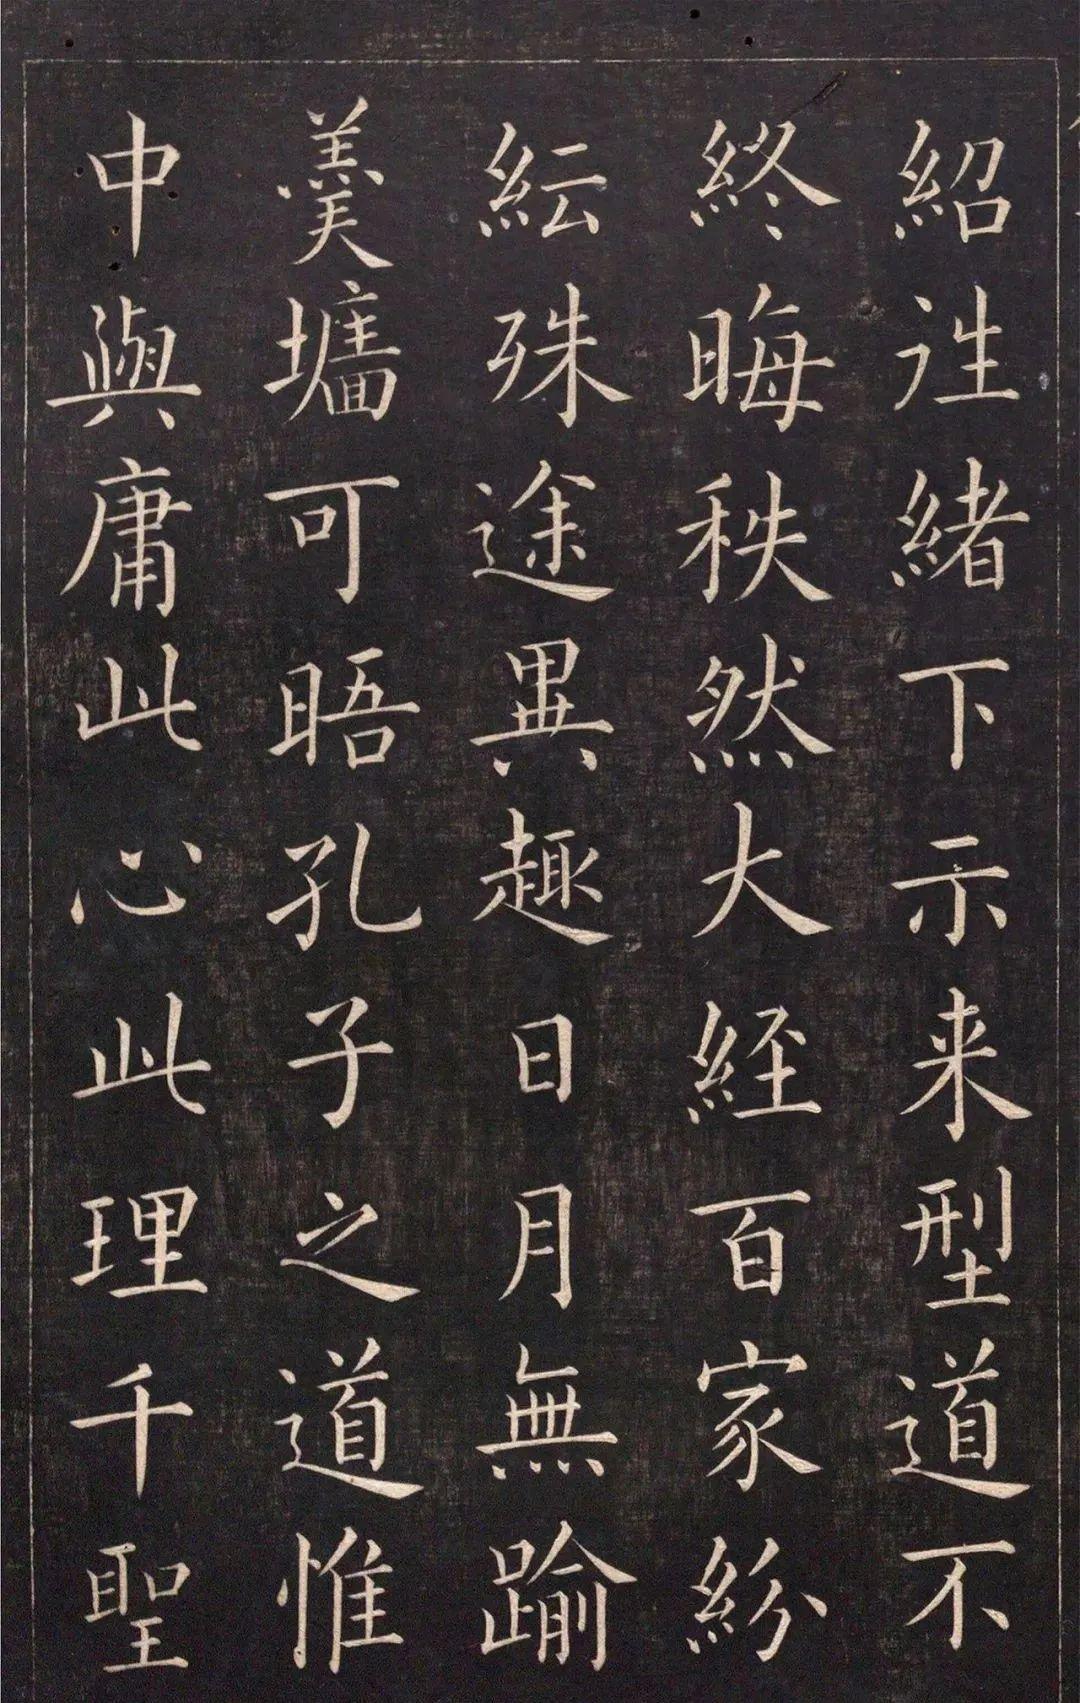 紹徃緒下示来型道不
終晦秩然大經百家紛
紜殊途異趣日月無踰
羮墻可晤孔子之道惟
中與庸此心此理千聖